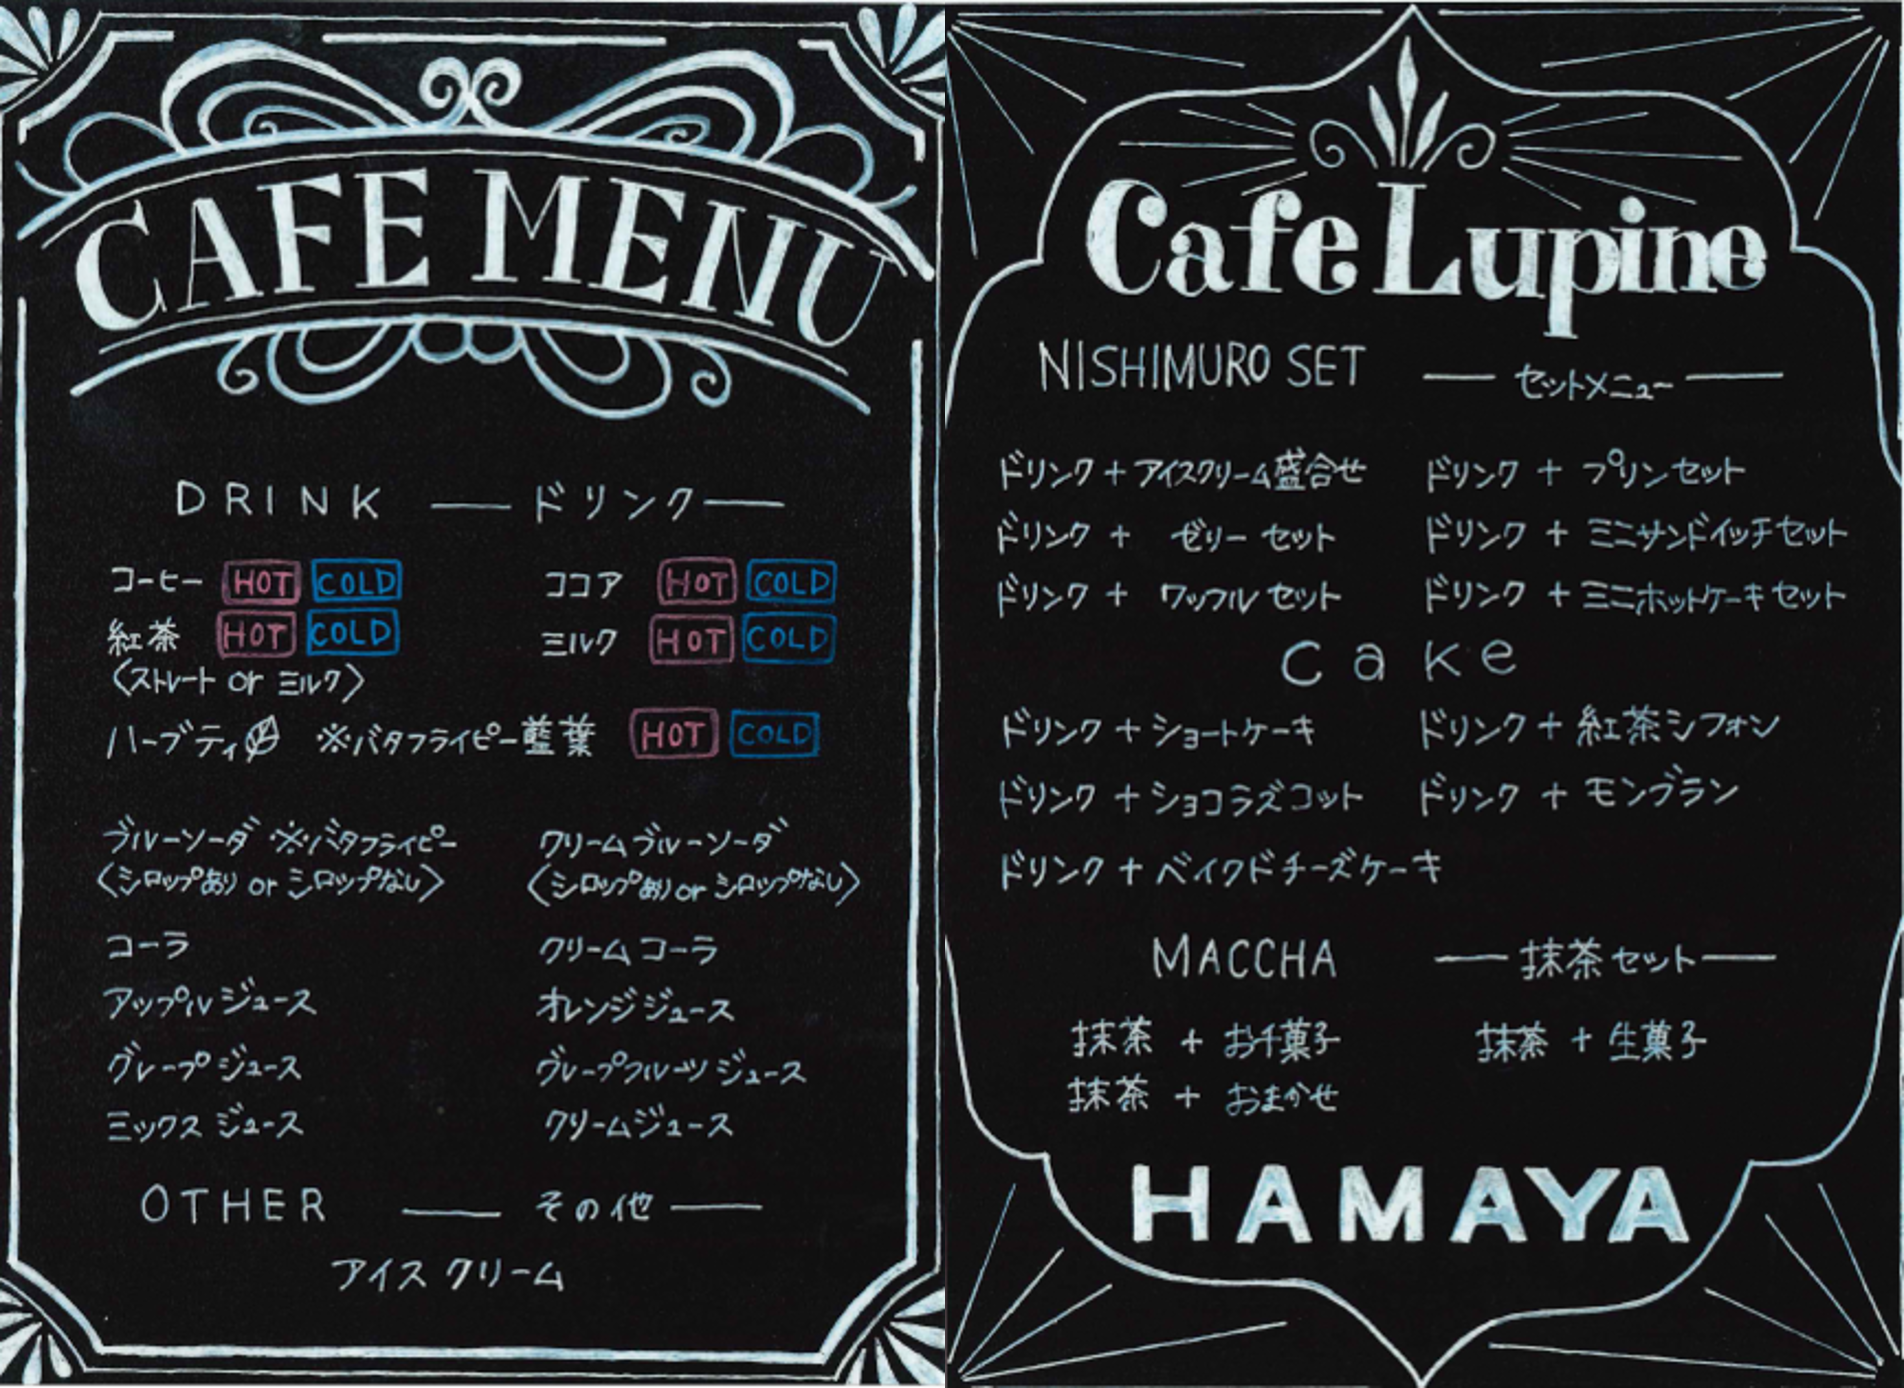 CAFE MENU
DRINK ― ドリンク ―
コーヒー HOT COLD
ココア HOT COLD
紅茶 HOT COLD
ミルク HOT COLD
〈ストレート or ミルク〉
ハーブティ ※バタフライピー藍葉 HOT COLD
ブルーソーダ ※バタフライピー
〈シロップあり or シロップなし〉
クリームブルーソーダ
〈シロップあり or シロップなし〉
コーラ
クリームコーラ
アップルジュース
オレンジジュース
グレープジュース
グレープフルーツジュース
ミックスジュース
クリームジュース
OTHER ― その他 ―
アイスクリーム
Cafe Lupine
NISHIMURO SET ― セットメニュー ―
ドリンク + アイスクリーム盛合せ
ドリンク + プリンセット
ドリンク + ゼリーセット
ドリンク + ミニサンドイッチセット
ドリンク + ワッフルセット
ドリンク + ミニホットケーキセット
Cake
ドリンク + ショートケーキ
ドリンク + 紅茶シフォン
ドリンク + ショコラズコット
ドリンク + モンブラン
ドリンク + ベイクドチーズケーキ
MACCHA ― 抹茶セット ―
抹茶 + お干菓子
抹茶 + 生菓子
抹茶 + おまかせ
HAMAYA